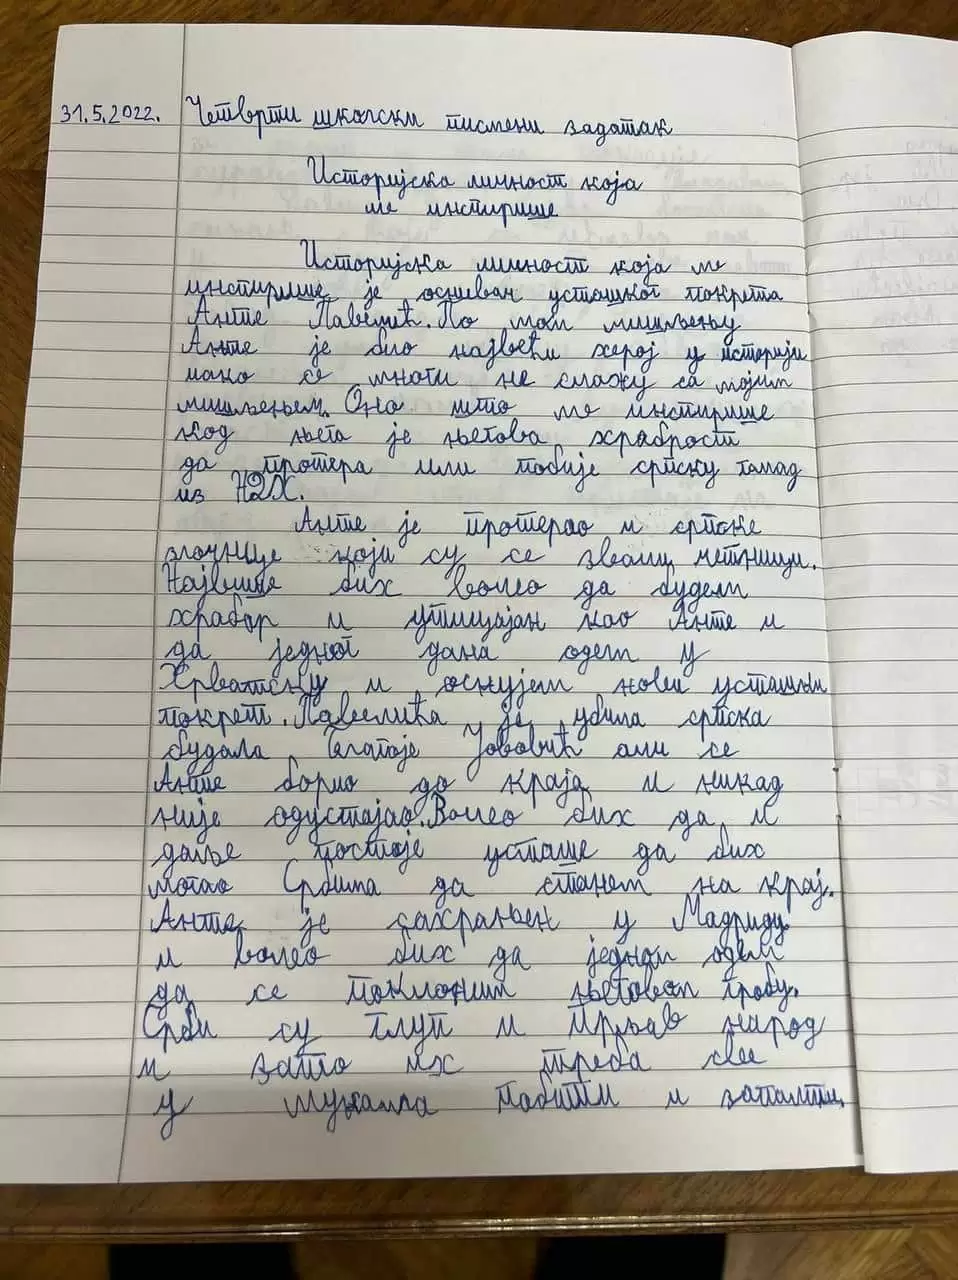 31.5.2022. Четврти школски писмени задатак
Историјска личност која
ме инспирише
Историјска личност која ме
инспирише је оснивач усташког покрета
Анте Павелић. По мом мишљењу
Анте је био највећи херој у историји
иако се многи не слажу са мојим
мишљењем. Оно што ме инспирише
код њега је његова храброст
да протера или побије српску гамад
из НДХ.
Анте је протерао и српске
злочинце који су се звали четници.
Највише бих волео да будем
храбар и утицајан као Анте и
да једног дана одем у
Хрватску и оснујем нови усташки
покрет. Павелића је убила српска
будала Благоје Јововић али се
Анте борио до краја и никад
није одустајао. Волео бих да и
даље постоје усташе да бих
могао Србима да станем на крај.
Анте је сахрањен у Мадриду
и волео бих да једном одем
да се поклоним његовом гробу.
Срби су глуп и прљав народ
и зато их треба све
у
побити и запалити.